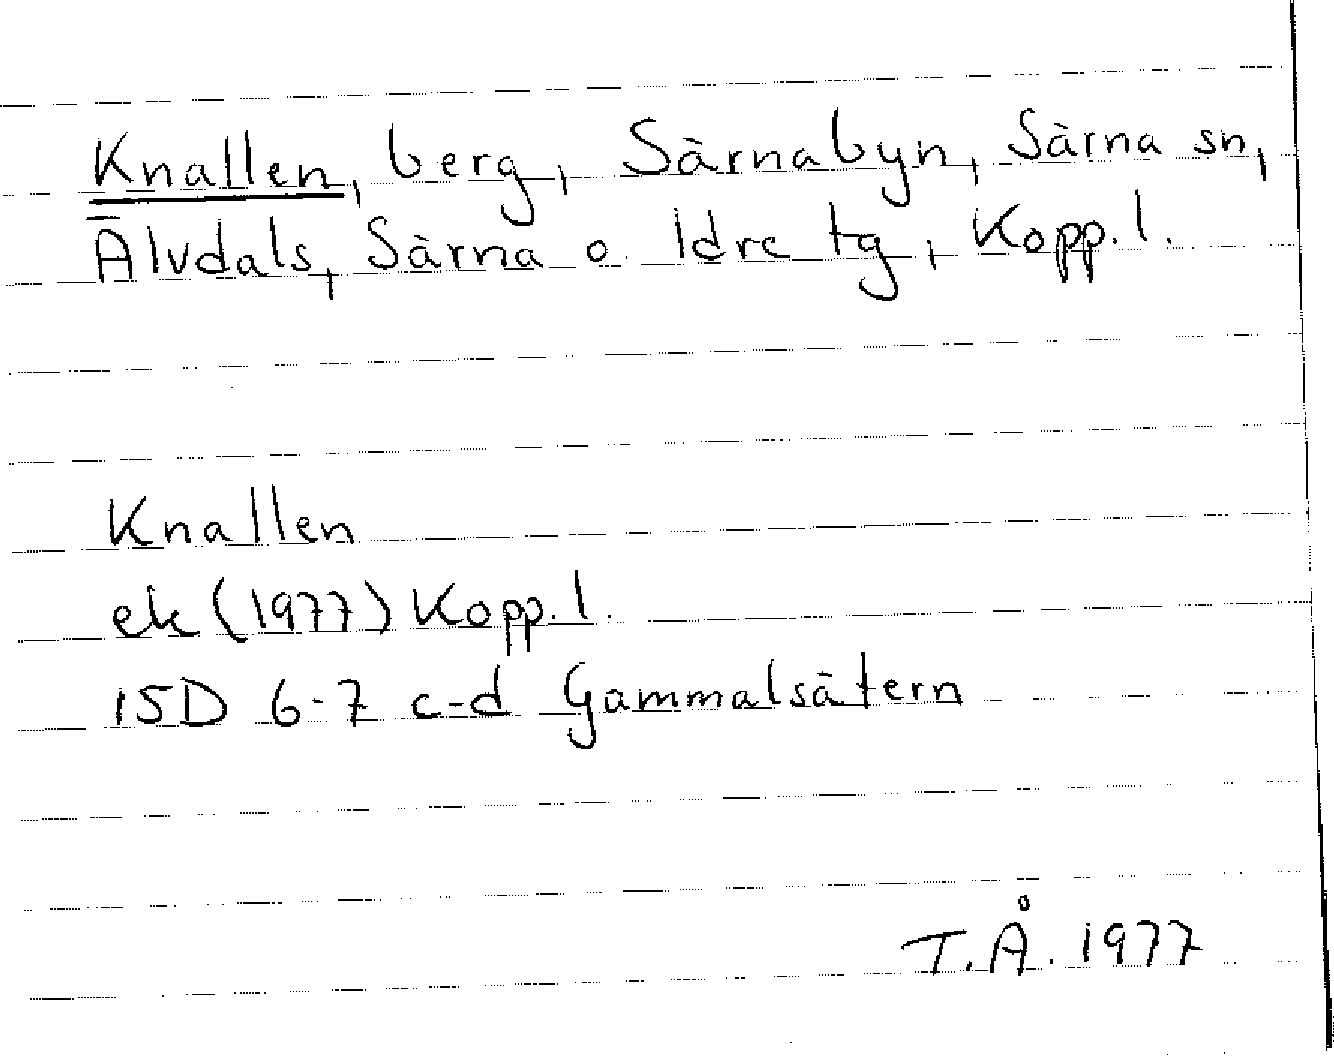 Knallen, berg, Särnabyn, Särna sn,
Älvdals, Särna o Idre tg, Kopp. l.
Knallen
ek (1977) Kopp. l.
15D 6-7 c-d Gammalsätern
T.Å. 1977